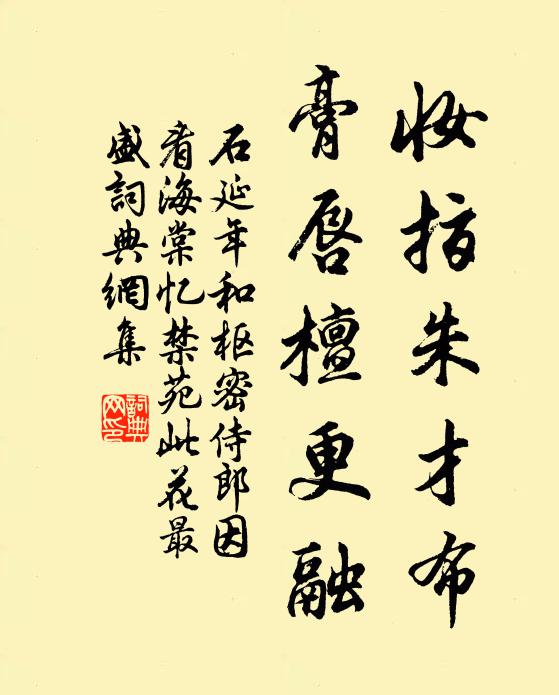 妆指朱才布
膏唇檀更融
石延年和枢密侍郎因
看海棠忆禁苑此花最
盛詞典網集
詞典
网印